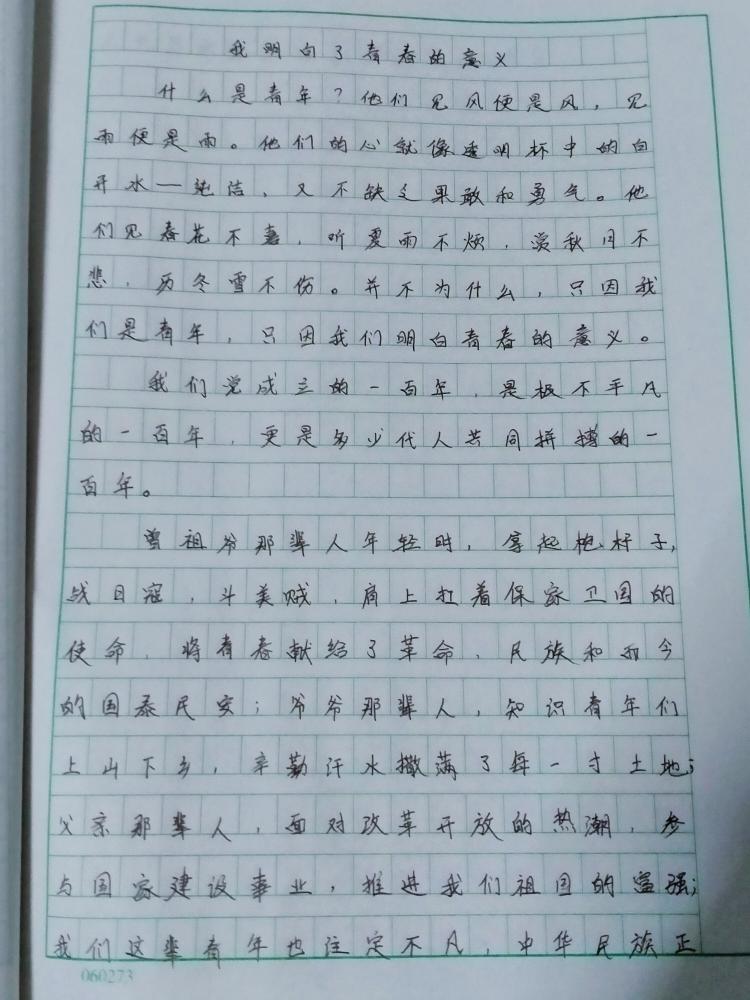 我明白了青春的意义
什么是青年？他们见风便是风，见
雨便是雨。他们的心就像透明杯中的白
开水一纯洁，又不缺乏果敢和勇气。他
们见春花不喜，听夏雨不烦，赏秋月不
悲，历冬雪不伤。并不为什么，只因我
们是青年，只因我们明白青春的意义。
我们党成立的一百年，是极不平凡
的一百年，更是多少代人共同拼搏的一
百年。
曾祖爷那辈人年轻时，拿起枪杆子，
战日寇，斗美贼，肩上扛着保家卫国的
使命，将青春献给了革命、民族和如今
的国泰民安；爷爷那辈人，知识青年们
上山下乡，辛勤汗水撒满了每一寸土地；
父亲那辈人，面对改革开放的热潮，参
与国家建设事业，推进我们祖国的富强；
我们这辈青年也注定不凡，中华民族正
060273